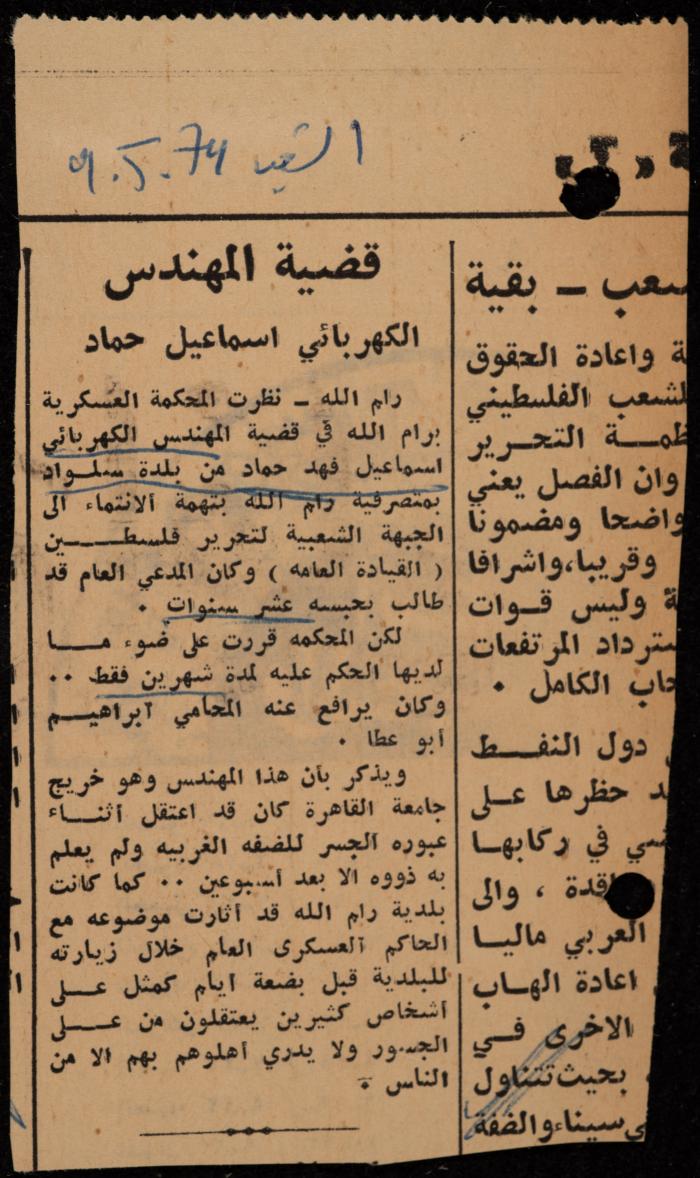 الشعب 9.5.74
قضية المهندس
الكهربائي اسماعيل حماد
رام الله ــ نظرت المحكمة العسكرية
برام الله في قضية المهندس الكهربائي
اسماعيل فهد حماد من بلدة سلواد
بمتصرفية رام الله بتهمة الانتماء الى
الجبهة الشعبية لتحرير فلسطين
( القيادة العامه ) وكان المدعي العام قد
طالب بحبسه عشر سنوات .
لكن المحكمه قررت على ضوء ما
لديها الحكم عليه لمدة شهرين فقط ..
وكان يرافع عنه المحامي ابراهيم
أبو عطا .
ويذكر بأن هذا المهندس وهو خريج
جامعة القاهرة كان قد اعتقل أثناء
عبوره الجسر للضفه الغربيه ولم يعلم
به ذووه الا بعد أسبوعين .. كما كانت
بلدية رام الله قد أثارت موضوعه مع
الحاكم العسكرى العام خلال زيارته
للبلدية قبل بضعة ايام كمثل على
أشخاص كثيرين يعتقلون من على
الجسور ولا يدري أهلوهم بهم الا من
الناس .
ـ بقية
ة واعادة الحقوق
لشعب الفلسطيني
ظمة التحرير
وان الفصل يعني
واضحا ومضمونا
وقريبا،واشرافا
ة وليس قوات
سترداد المرتفعات
حاب الكامل .
دول النفط
د حظرها على
سي في ركابها
اقدة ، والى
العربي ماليا
اعادة الهاب
الاخرى في
بحيث تتناول
ي سيناء والضفة